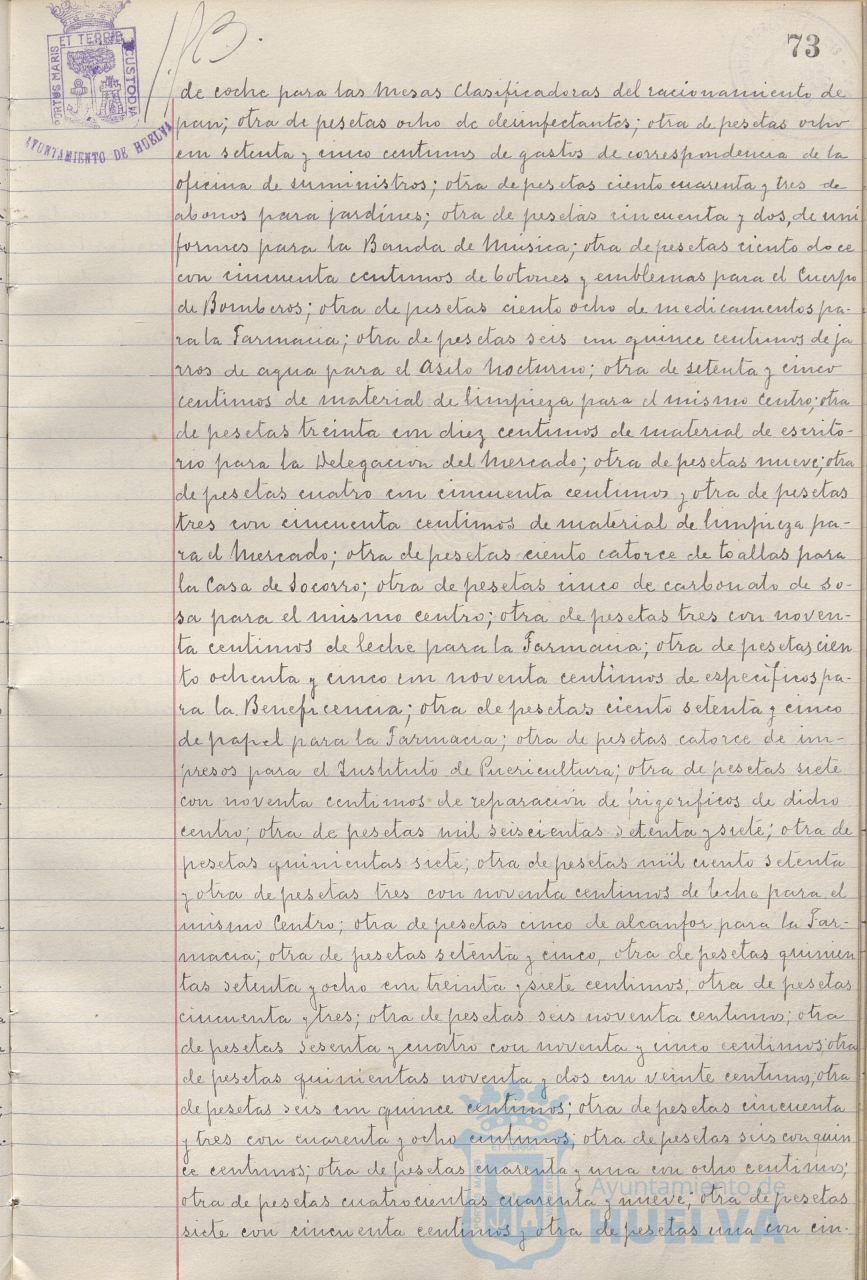 73
de coche para las mesas clasificadoras del racionamiento de
pan; otra de pesetas ocho de desinfectantes; otra de pesetas ocho
con setenta y cinco centimos de gastos de correspondencia de la
oficina de suministros; otra de pesetas ciento cuarenta y tres de
abonos para jardines; otra de pesetas cincuenta y dos, de uni
formes para la Banda de Música; otra de pesetas ciento doce
con cincuenta centimos de botones y emblemas para el Cuerpo
de Bomberos; otra de pesetas ciento ocho de medicamentos pa-
ra la Farmacia; otra de pesetas seis con quince centimos de ja
rros de agua para el Asilo Nocturno; otra de setenta y cinco
centimos de material de limpieza para el mismo centro; otra
de pesetas treinta con diez centimos de material de escrito-
rio para la Delegacion del Mercado; otra de pesetas nueve; otra
de pesetas cuatro con cincuenta centimos y otra de pesetas
tres con cincuenta centimos de material de limpieza pa-
ra el Mercado; otra de pesetas ciento catorce de toallas para
la Casa de Socorro; otra de pesetas cinco de carbonato de so-
sa para el mismo centro; otra de pesetas tres con noven-
ta centimos de leche para la Farmacia; otra de pesetas cien
to ochenta y cinco con noventa centimos de específicos pa-
ra la Beneficencia; otra de pesetas ciento setenta y cinco
de papel para la Farmacia; otra de pesetas catorce de im-
presos para el Instituto de Puericultura; otra de pesetas siete
con noventa centimos de reparación de frigorificos de dicho
centro; otra de pesetas mil seiscientas setenta y siete; otra de
pesetas quinientas siete; otra de pesetas mil ciento setenta
y otra de pesetas tres con noventa centimos de leche para el
mismo Centro; otra de pesetas cinco de alcanfor para la Far-
macia; otra de pesetas setenta y cinco, otra de pesetas quinien
tas setenta y ocho con treinta y siete centimos; otra de pesetas
cincuenta y tres; otra de pesetas seis noventa centimos; otra
de pesetas sesenta y cuatro con noventa y cinco centimos; otra
de pesetas quinientas noventa y dos con veinte centimos; otra
de pesetas seis con quince centimos; otra de pesetas cincuenta
y tres con cuarenta y ocho centimos; otra de pesetas seis con quin
ce centimos; otra de pesetas cuarenta y una con ocho centimos;
otra de pesetas cuatrocientas cuarenta y nueve; otra de pesetas
siete con cincuenta centimos y otra de pesetas una con cin-
PORTUS MARIS ET TERRE CUSTODIA
AYUNTAMIENTO DE HUELVA
Ayuntamiento de
HUELVA